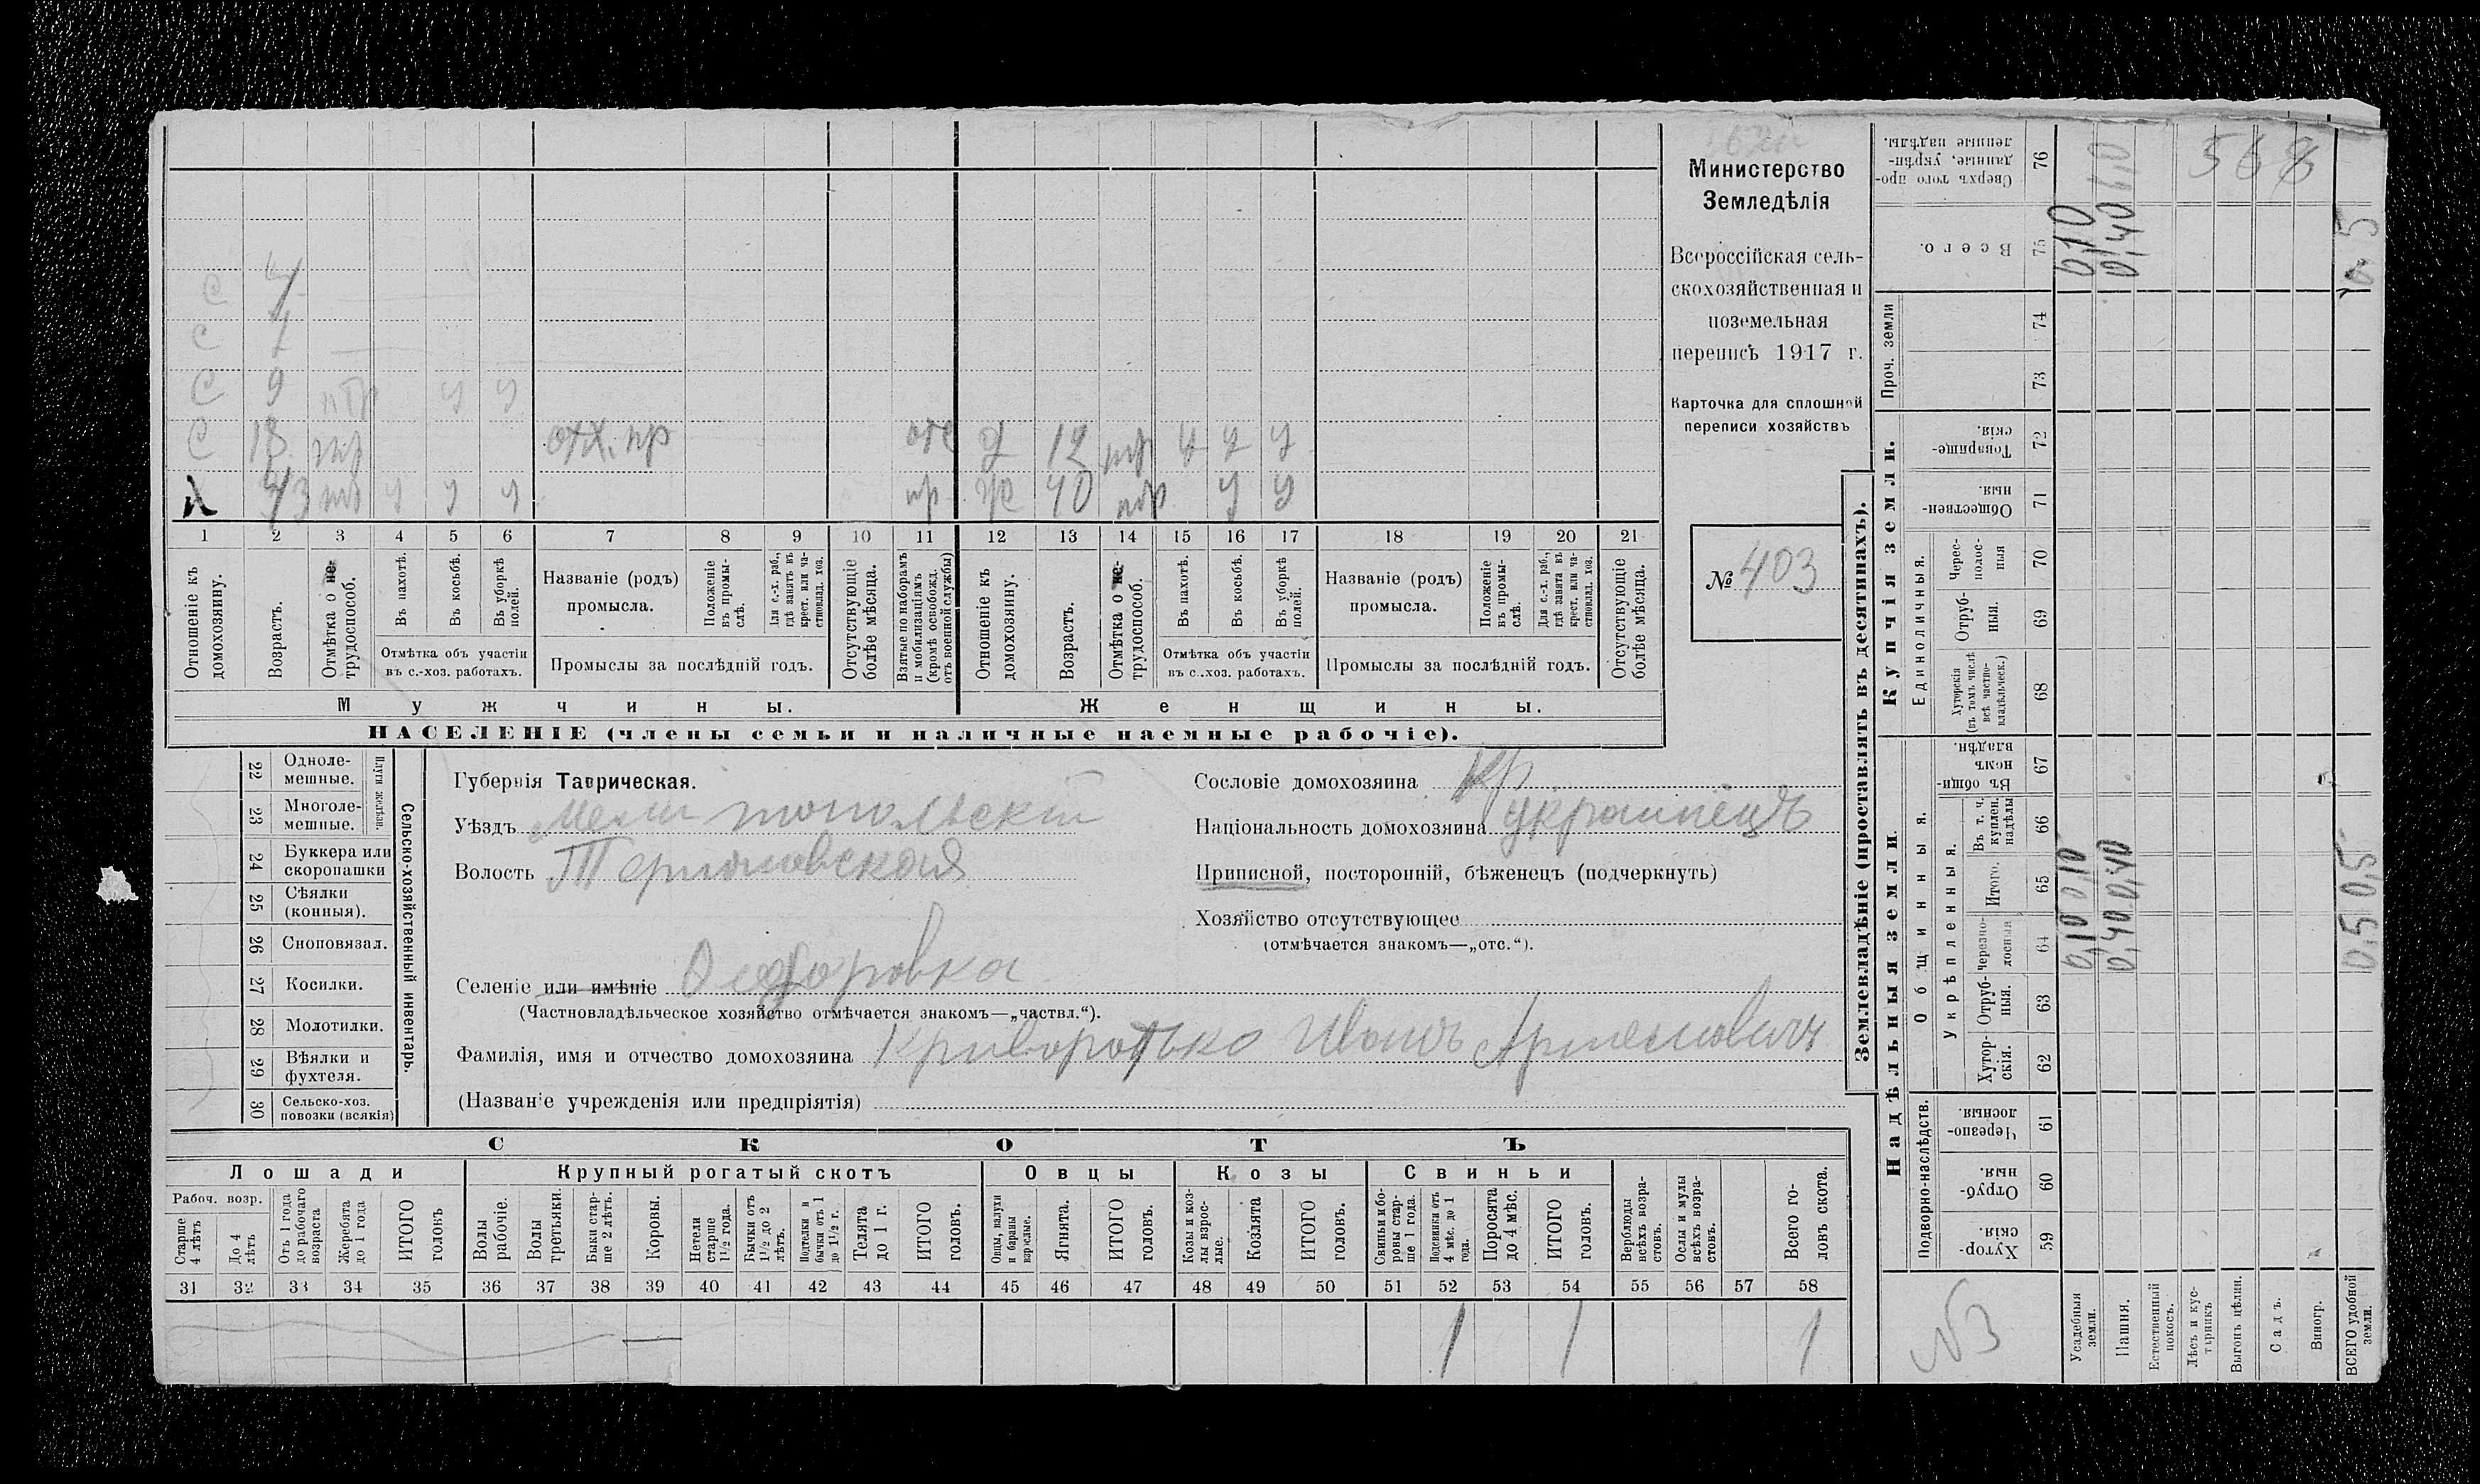 Министерство
Земледѣлія
Всероссійская сель-
скохозяйственная и
поземельная
перепись 1917 г.
Карточка для сплошной
переписи хозяйствъ
№ 403
С 4
С
С 9 у у
С 13 отх. пр отс д 12 у у у
х 43 у у у пр. ж 40 у у
1 2 3 4 5 6 7 8 9 10 11 12 13 14 15 16 17 18 19 20 21
Отношеніе къ домохозяину.
Возрастъ.
Отмѣтка о не-трудоспособ.
Въ пахотѣ.
Въ косьбѣ.
Въ уборкѣ полей.
Отмѣтка объ участіи въ с.-хоз. работахъ.
Названіе (родъ) промысла.
Положеніе въ промы-слѣ.
Для с.-х. раб., гдѣ занятъ въ крест. или ча-стновлад. хоз.
Промыслы за послѣдній годъ.
Отсутствующіе болѣе мѣсяца.
Взятые по наборамъ и мобилизаціямъ (кромѣ освобожд. отъ военной службы)
Отношеніе къ домохозяину.
Возрастъ.
Отмѣтка о не-трудоспособ.
Въ пахотѣ.
Въ косьбѣ.
Въ уборкѣ полей.
Отмѣтка объ участіи въ с.-хоз. работахъ.
Названіе (родъ) промысла.
Положеніе въ промы-слѣ.
Для с.-х. раб., гдѣ занята въ крест. или ча-стновлад. хоз.
Промыслы за послѣдній годъ.
Отсутствующіе болѣе мѣсяца.
Мужчины. Женщины.
НАСЕЛЕНІЕ (члены семьи и наличные наемные рабочіе).
Сельско-хозяйственный инвентарь.
Плуги желѣзн.
22 Одноле-мешные.
23 Многоле-мешные.
24 Буккера или скоропашки
25 Сѣялки (конныя).
26 Сноповязал.
27 Косилки.
28 Молотилки.
29 Вѣялки и фухтеля.
30 Сельско-хоз. повозки (всякія)
Губернія Таврическая.
Уѣздъ Мелитопольскій
Волость
Селеніе или имѣніе Федоровка
(Частновладѣльческое хозяйство отмѣчается знакомъ—„частвл.“).
Фамилія, имя и отчество домохозяина Криворотько Иванъ Артемовичъ
(Названіе учрежденія или предпріятія)
Сословіе домохозяина кр
Національность домохозяина украинецъ
Приписной, посторонній, бѣженецъ (подчеркнуть)
Хозяйство отсутствующее
(отмѣчается знакомъ—„отс.“).
СКОТЪ
Лошади Крупный рогатый скотъ Овцы Козы Свиньи
Рабоч. возр.
Старше 4 лѣтъ
До 4 лѣтъ
Отъ 1 года до рабочаго возраста
Жеребята до 1 года
ИТОГО головъ
Волы рабочіе.
Волы третьяки.
Быки стар-ше 2 лѣтъ.
Коровы.
Нетели старше 1½ года.
Бычки отъ 1½ до 2 лѣтъ.
Подтелки и бычки отъ 1 до 1½ г.
Телята до 1 г.
ИТОГО головъ.
Овцы, валухи и бараны взрослые.
Ягнята.
ИТОГО головъ.
Козы и коз-лы взрос-лые.
Козлята
ИТОГО головъ.
Свиньи и бо-ровы стар-ше 1 года.
Подсвинки отъ 4 мѣс. до 1 года.
Поросята до 4 мѣс.
ИТОГО головъ.
Верблюды всѣхъ возра-стовъ.
Ослы и мулы всѣхъ возра-стовъ.
Всего го-ловъ скота.
31 32 33 34 35 36 37 38 39 40 41 42 43 44 45 46 47 48 49 50 51 52 53 54 55 56 57 58
1 1 1
Землевладѣніе (проставлять въ десятинахъ).
Надѣльныя земли Купчія земли. Проч. земли
Подворно-наслѣдств.
Общинныя.
Укрѣпленныя.
Единоличныя.
59 Хутор-скія.
60 Отруб-ныя.
61 Черезпо-лосныя.
62 Хутор-скія.
63 Отруб-ныя.
64 Черезпо-лосныя
65 Итого.
66 Въ т. ч. куплен. надѣлы
67 Въ общин-номъ владѣн.
68 Хуторскія (въ томъ числѣ всѣ частно-владѣльческ.)
69 Отруб-ныя.
70 Черес-полос-ныя
71 Обществен-ныя.
72 Товарище-скія.
73
74
75 Всего.
76 Сверхъ того про-данные, укрѣп-ленные надѣлы.
Усадебныя земли. 0,10 0,10 0,10
Пашня. 0,40 0,40 0,40
Естественный покосъ.
Лѣсъ и кус-тарникъ
Выгонъ цѣлин.
Садъ.
Виногр.
ВСЕГО удобной земли. 0,5 0,5
568
№3